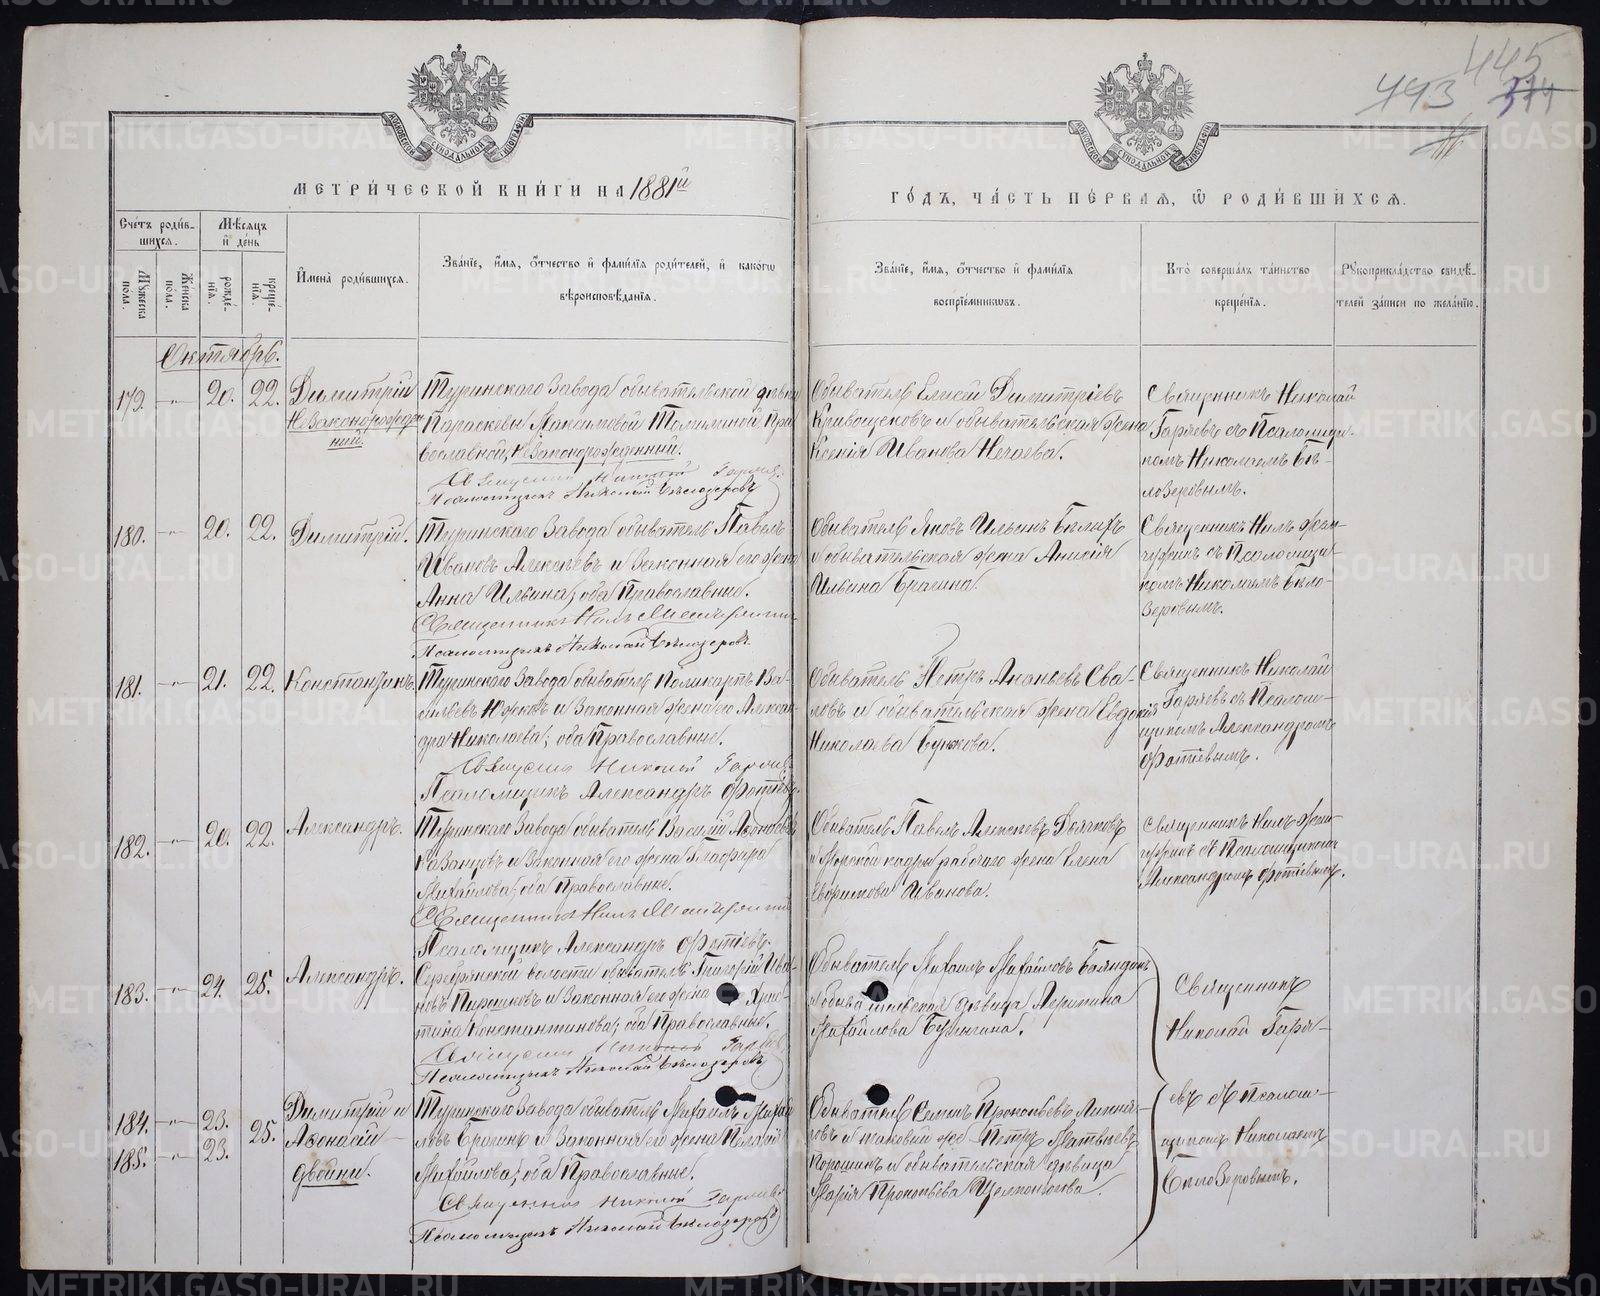 445
493 374
МЕТРИ́ЧЕСКОЙ КНИ́ГИ НА 1881й
ГО́ДЪ, ЧА́СТЬ ПЕ́РВАЯ, Ѽ РОДИ́ВШИХСЯ.
Сче́тъ роди́в-
шихся.
Мѣ́сяцъ
и҆ де́нь
Му́жеска пола.
Же́нска пола.
рожде́-
нїя.
креще́-
нїя.
И҆мена̀ роди́вшихся.
Зва́нїе, и҆́мя, ѻ҆́тчество и҆ фами́лїя роди́телей, и҆ како́гѡ
вѣроисповѣ́данїя.
Зва́нїе, и҆́мя, ѻ҆́тчество и҆ фами́лїя
воспрїе́мникѡвъ.
Кто̀ соверша́лъ та́инство
креще́нїя.
Рꙋкоприкла́дство свидѣ́-
телей за́писи по жела́нїю.
Октябрь.
179. -"- 20. 22. Димитрій
Незаконорожден
ный.
Туринскаго Завода обывательской дѣвки
Параскевы Максимовой Православной, Незаконорожденный.
Священник Николай Гаряев
Псаломщикъ Николай Бѣлозеровъ
Обыватель Елисей Димитріевъ
Кривощековъ и обывательская жена
Ксенія Иванова Нечаева.
Священникъ Николай
Гаряевъ съ Псаломщи-
комъ Николаемъ Бѣ-
лозеровымъ.
180. -"- 20. 22. Димитрій.
Туринскаго Завода обыватель Павелъ
Ивановъ Алексѣевъ и Законная его жена
Анна Ильина, оба Православные.
Священникъ Нилъ
Псаломщикъ Николай Бѣлозеровъ
Обыватель Яковъ Ильинъ
и обывательская жена Анисія
Ильина Брагина.
Священникъ Нилъ
съ Псаломщи-
комъ Николаемъ Бѣло-
зеровымъ.
181. -"- 21. 22. Константинъ.
Туринскаго Завода обыватель Поликарпъ Ва-
сильевъ и Законная жена его Алексан-
дра Николаева; оба Православные.
Священникъ Николай Гаряев
Псаломщикъ Александръ Фотіевъ
Обыватель Петръ Ананьевъ Сва-
ловъ и обывательская жена Евдокія
Николаева
Священникъ Николай
Гаряевъ съ Псалом-
щикомъ Александромъ
Фотіевымъ.
182. -"- 20. 22. Александръ.
Туринскаго Завода обыватель Василій
Казанцовъ и Законная его жена Глафира
Михайлова; оба Православные.
Священникъ Нилъ
Псаломщикъ Александръ Фотіевъ.
Обыватель Павелъ Алексѣевъ Дьячковъ
рабочаго жена Елена
Евфимова Иванова.
Священникъ Нилъ
съ Псаломщикомъ
Александромъ Фотіевымъ.
183. -"- 24. 25. Александръ.
Серебрянской волости обыватель Григорій Ива-
новъ и Законная его жена Хрис-
тина Константинова; оба Православные.
Священникъ Николай Гаряев
Псаломщикъ Николай Бѣлозеровъ
Обыватель Михаилъ Михайловъ
и обывательская дѣвица
Михайлова
Священникъ
Николай Гаря-
евъ съ Псалом-
щикомъ Николаемъ
Бѣлозеровымъ.
184. -"- 23. 25. Димитрій и
185. -"- 23. Аѳонасій
двойни.
Туринскаго Завода обыватель Михаилъ Михай
ловъ Брагинъ и Законная его жена Пелагія
Михайлова; оба Православные.
Священникъ Николай Гаряев
Псаломщикъ Николай Бѣлозеровъ
Обыватель Прокопьевъ
и таковой же Петръ Матвѣевъ
и обывательская дѣвица
Марія Прокопьева